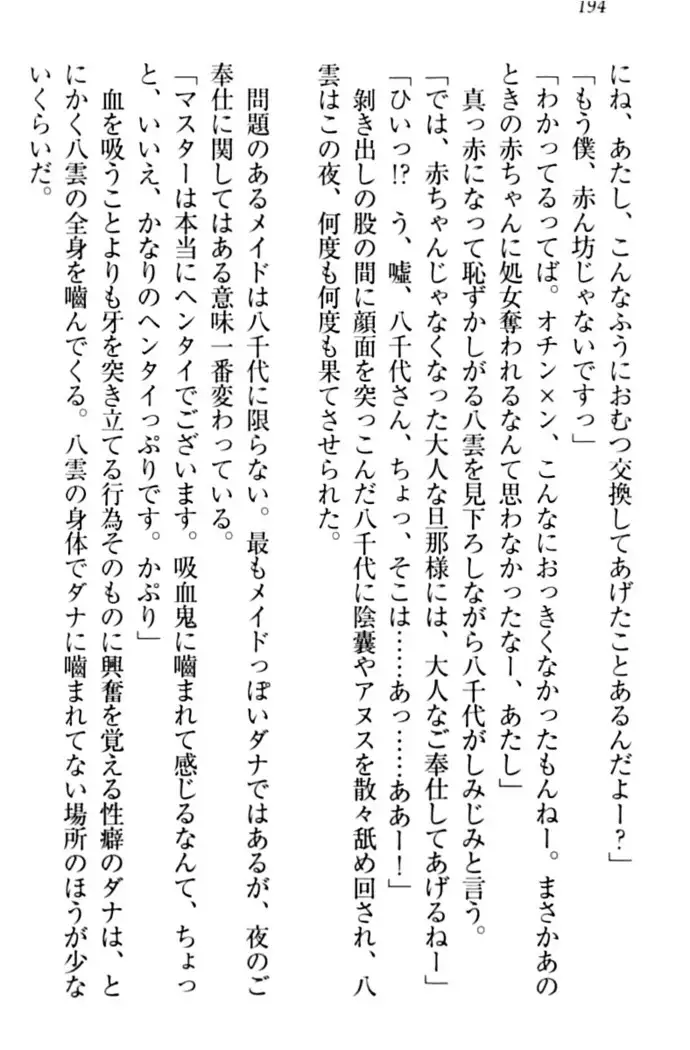 194
にね、あたし、こんなふうにおむつ交換してあげたことあるんだよー？」
「もう僕、赤ん坊じゃないですっ」
「わかってるってば。オチン×ン、こんなにおっきくなかったもんねー。まさかあの
ときの赤ちゃんに処女奪われるなんて思わなかったなー、あたし」
真っ赤になって恥ずかしがる八雲を見下ろしながら八千代がしみじみと言う。
「では、赤ちゃんじゃなくなった大人な旦那様には、大人なご奉仕してあげるねー」
「ひいっ!?　う、嘘、八千代さん、ちょっ、そこは……あっ……ああー！」
剝き出しの股の間に顔面を突っこんだ八千代に陰嚢やアヌスを散々舐め回され、八
雲はこの夜、何度も何度も果てさせられた。
問題のあるメイドは八千代に限らない。最もメイドっぽいダナではあるが、夜のご
奉仕に関してはある意味一番変わっている。
「マスターは本当にヘンタイでございます。吸血鬼に嚙まれて感じるなんて、ちょっ
と、いいえ、かなりのヘンタイっぷりです。かぷり」
血を吸うことよりも牙を突き立てる行為そのものに興奮を覚える性癖のダナは、と
にかく八雲の全身を嚙んでくる。八雲の身体でダナに嚙まれてない場所のほうが少な
いくらいだ。